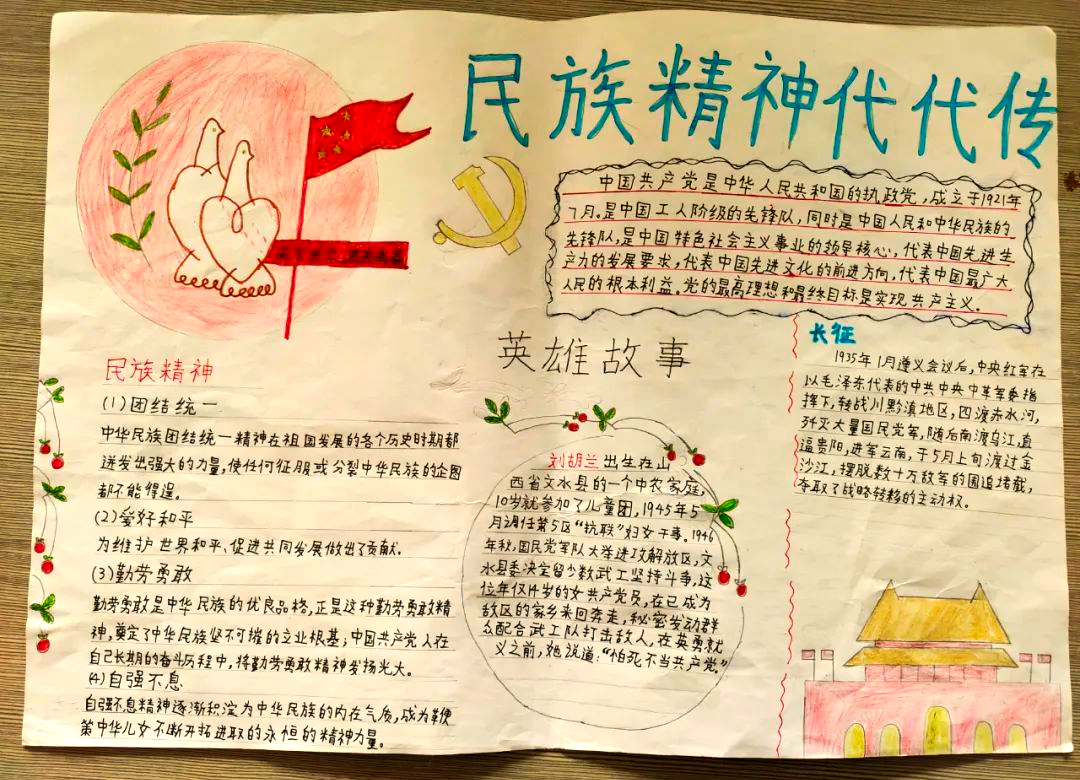 民族精神代代传
中国共产党是中华人民共和国的执政党，成立于1921年
7月。是中国工人阶级的先锋队，同时是中国人民和中华民族的
先锋队，是中国特色社会主义事业的领导核心，代表中国先进生
产力的发展要求，代表中国先进文化的前进方向，代表中国最广大
人民的根本利益。党的最高理想和最终目标是实现共产主义。
民族精神
(1)团结统一
中华民族团结统一精神在祖国发展的各个历史时期都
迸发出强大的力量，使任何征服或分裂中华民族的企图
都不能得逞。
(2)爱好和平
为维护世界和平、促进共同发展做出了贡献。
(3)勤劳勇敢
勤劳勇敢是中华民族的优良品格，正是这种勤劳勇敢精
神，奠定了中华民族坚不可摧的立业根基；中国共产党人在
自己长期的奋斗历程中，将勤劳勇敢精神发扬光大。
(4)自强不息
自强不息精神逐渐积淀为中华民族的内在气质，成为鞭
策中华儿女不断开拓进取的永恒的精神力量。
英雄故事
刘胡兰出生在山
西省文水县的一个中农家庭，
10岁就参加了儿童团，1945年5
月调任第5区“抗联”妇女干事。1946
年秋，国民党军队大举进攻解放区，文
水县委决定留少数武工坚持斗争，这
位年仅14岁的女共产党员，在已成为
敌区的家乡来回奔走，秘密发动群
众配合武工队打击敌人，在英勇就
义之前，她说道：“怕死不当共产党”
长征
1935年1月遵义会议后，中央红军在
以毛泽东代表的中共中央中革军委指
挥下，转战川黔滇地区，四渡赤水河，
歼灭大量国民党军，随后南渡乌江，直
逼贵阳，进军云南，于5月上旬渡过金
沙江，摆脱数十万敌军的围追堵截，
夺取了战略转移的主动权。